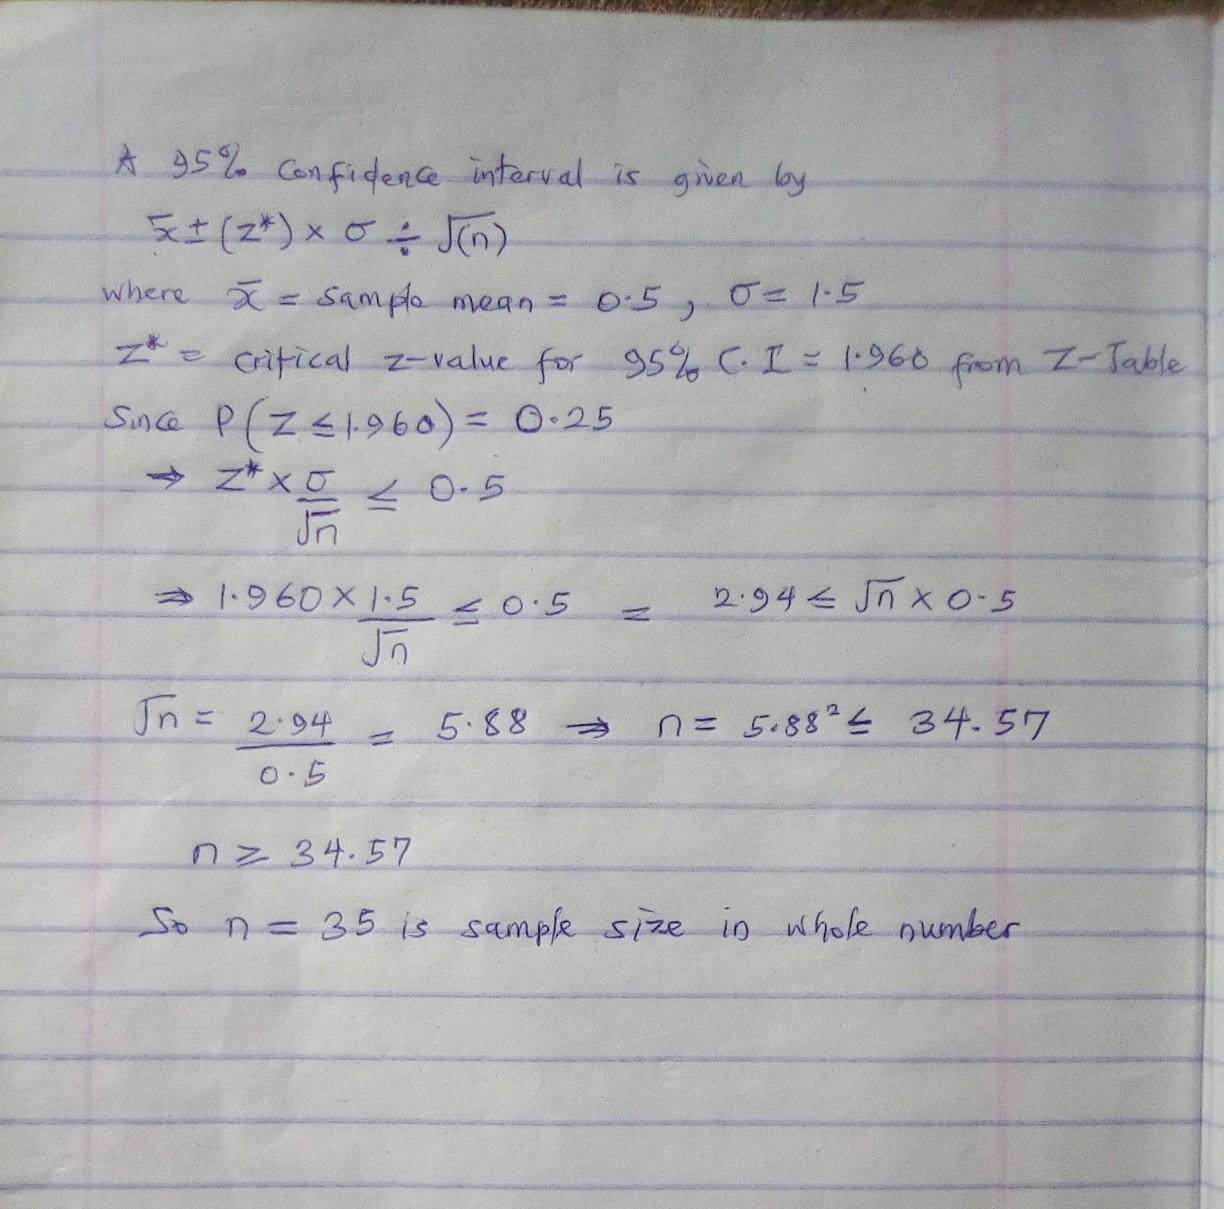 A 95% Confidence interval is given by
x̄ ± (z*) × σ ÷ √(n)
where x̄ = Sample mean = 0.5, σ = 1.5
Z* = Critical z-value for 95% C.I = 1.960 from Z-Table
Since P(Z ≤ 1.960) = 0.25
⇒ Z* × σ/√n ≤ 0.5
⇒ 1.960 × 1.5/√n ≤ 0.5 = 2.94 ≤ √n × 0.5
√n = 2.94/0.5 = 5.88 ⇒ n = 5.88² ≤ 34.57
n ≥ 34.57
So n = 35 is sample size in whole number